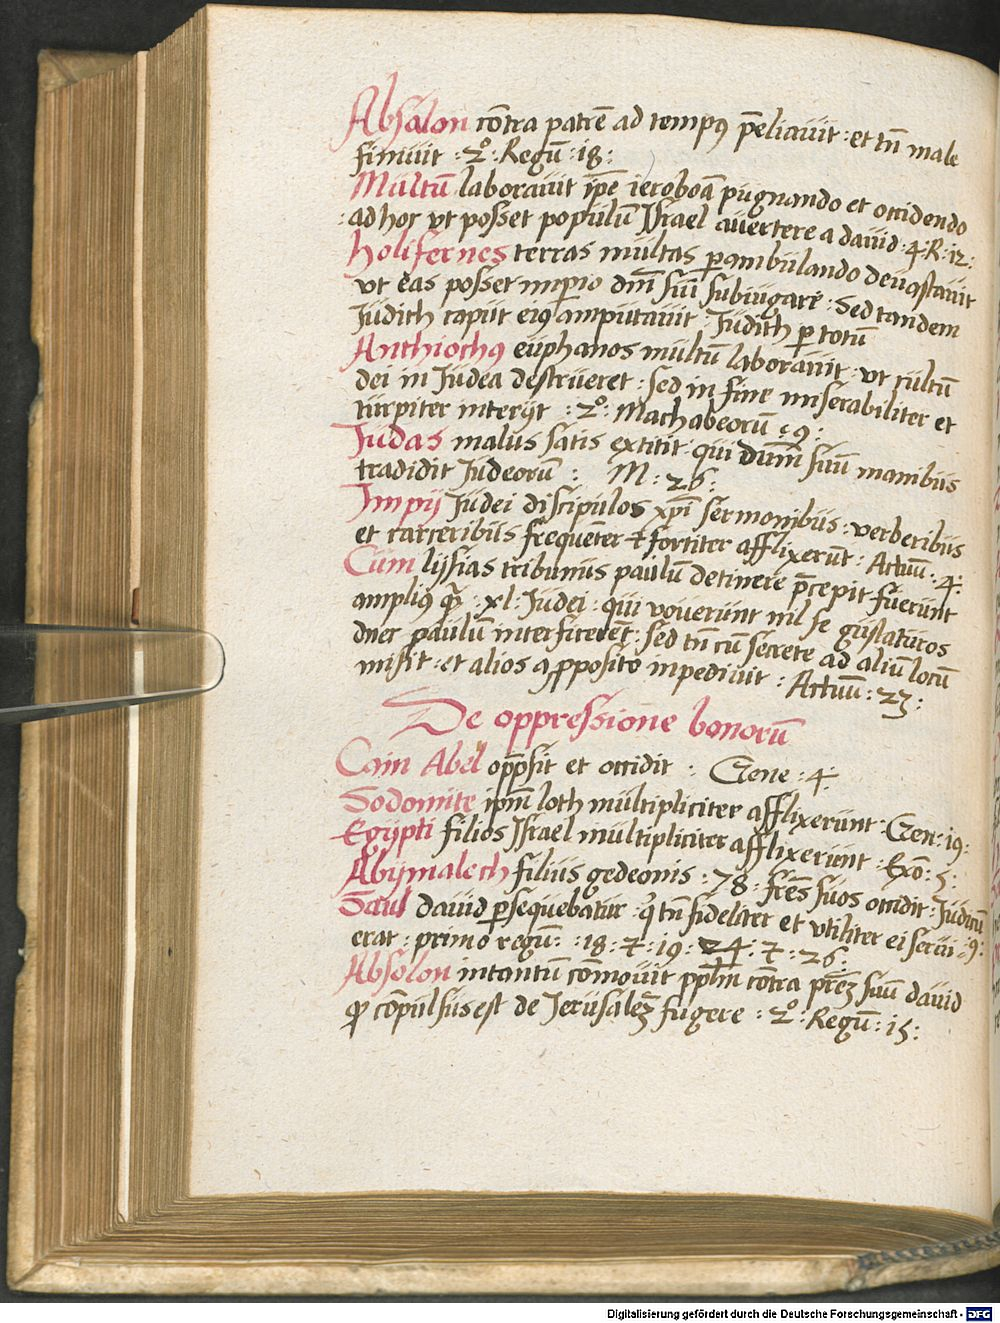 Absalon cōtra patrē ad tempꝯ p̄eliauit : et tn̄ male
finiuit : 2º : Regū : 18 :
Mūltū laborauit ip̄e ieroboā pugnando et occidendo
: ad hoc vt posset populū Jsrael auertere a dauid : 4 · R · 12 :
holifernes terras mūltas ꝑambūlando deuastauit
vt eas posset imperio dn̄i sui subiūgare · Sed tandem
Jūdith capūt eiꝯ ampūtauit : Jūdith ꝑ totū
Anthiochꝯ eūphanos mūltū laborauit · vt cūltū
dei in Jūdea destrūeret : sed in fine miserabiliter et
tūrpiter interijt : 2º : Machabeorū · 9 :
Jūdas malus satis extitit · qui dūm̄ sūū manibūs
tradidit Jūdeorū : M : 26 :
Jmpij Jūdei discipūlos xp̄i sermonibūs : verberibūs
et carceribūs freqūent̄er ⁊ fortiter afflixerūt : Actuū : 4 :
Cūm lijsias tribūnūs paulū detinere p̄cepit fūerūnt
ampliꝯ qꝫ · xl : Jūdei : qui vouerūnt nil se gūstatūros
donec paulū interficerēt : sed tn̄ cū secrete ad aliū locū
misit : et alios a ꝓposito inpediuit : Actuū : 23 :
De oppressione bonorū
Cain Abel opp̄sit et occidit : Gene : 4 :
Sodomite ip̄m loth mūltipliciter afflixerūnt · Gen : 19 :
Egijpti filios Jsrael mūltipliciter afflixerūnt : Exō : 5 :
Abijmalech filiūs gedeonis : 78 · fr̄es sūos occidit : Jūdicū
Saul dauid ꝑseqūebatūr · qͥ tn̄ fideliter et vtiliter ei serui : 9 :
erat : primo regū : : 18 : ⁊ : 19 : 24 : ⁊ : 26 :
Absolon intantū cōmouit pp̄lm cōtra pr̄eꝫ sūū dauid
ꝙ cōpūlsūs est de Jerūsaleꝫ fūgere : 2º : Regū : 15 :
Digitalisierung gefördert durch die Deutsche Forschungsgemeinschaft - DFG